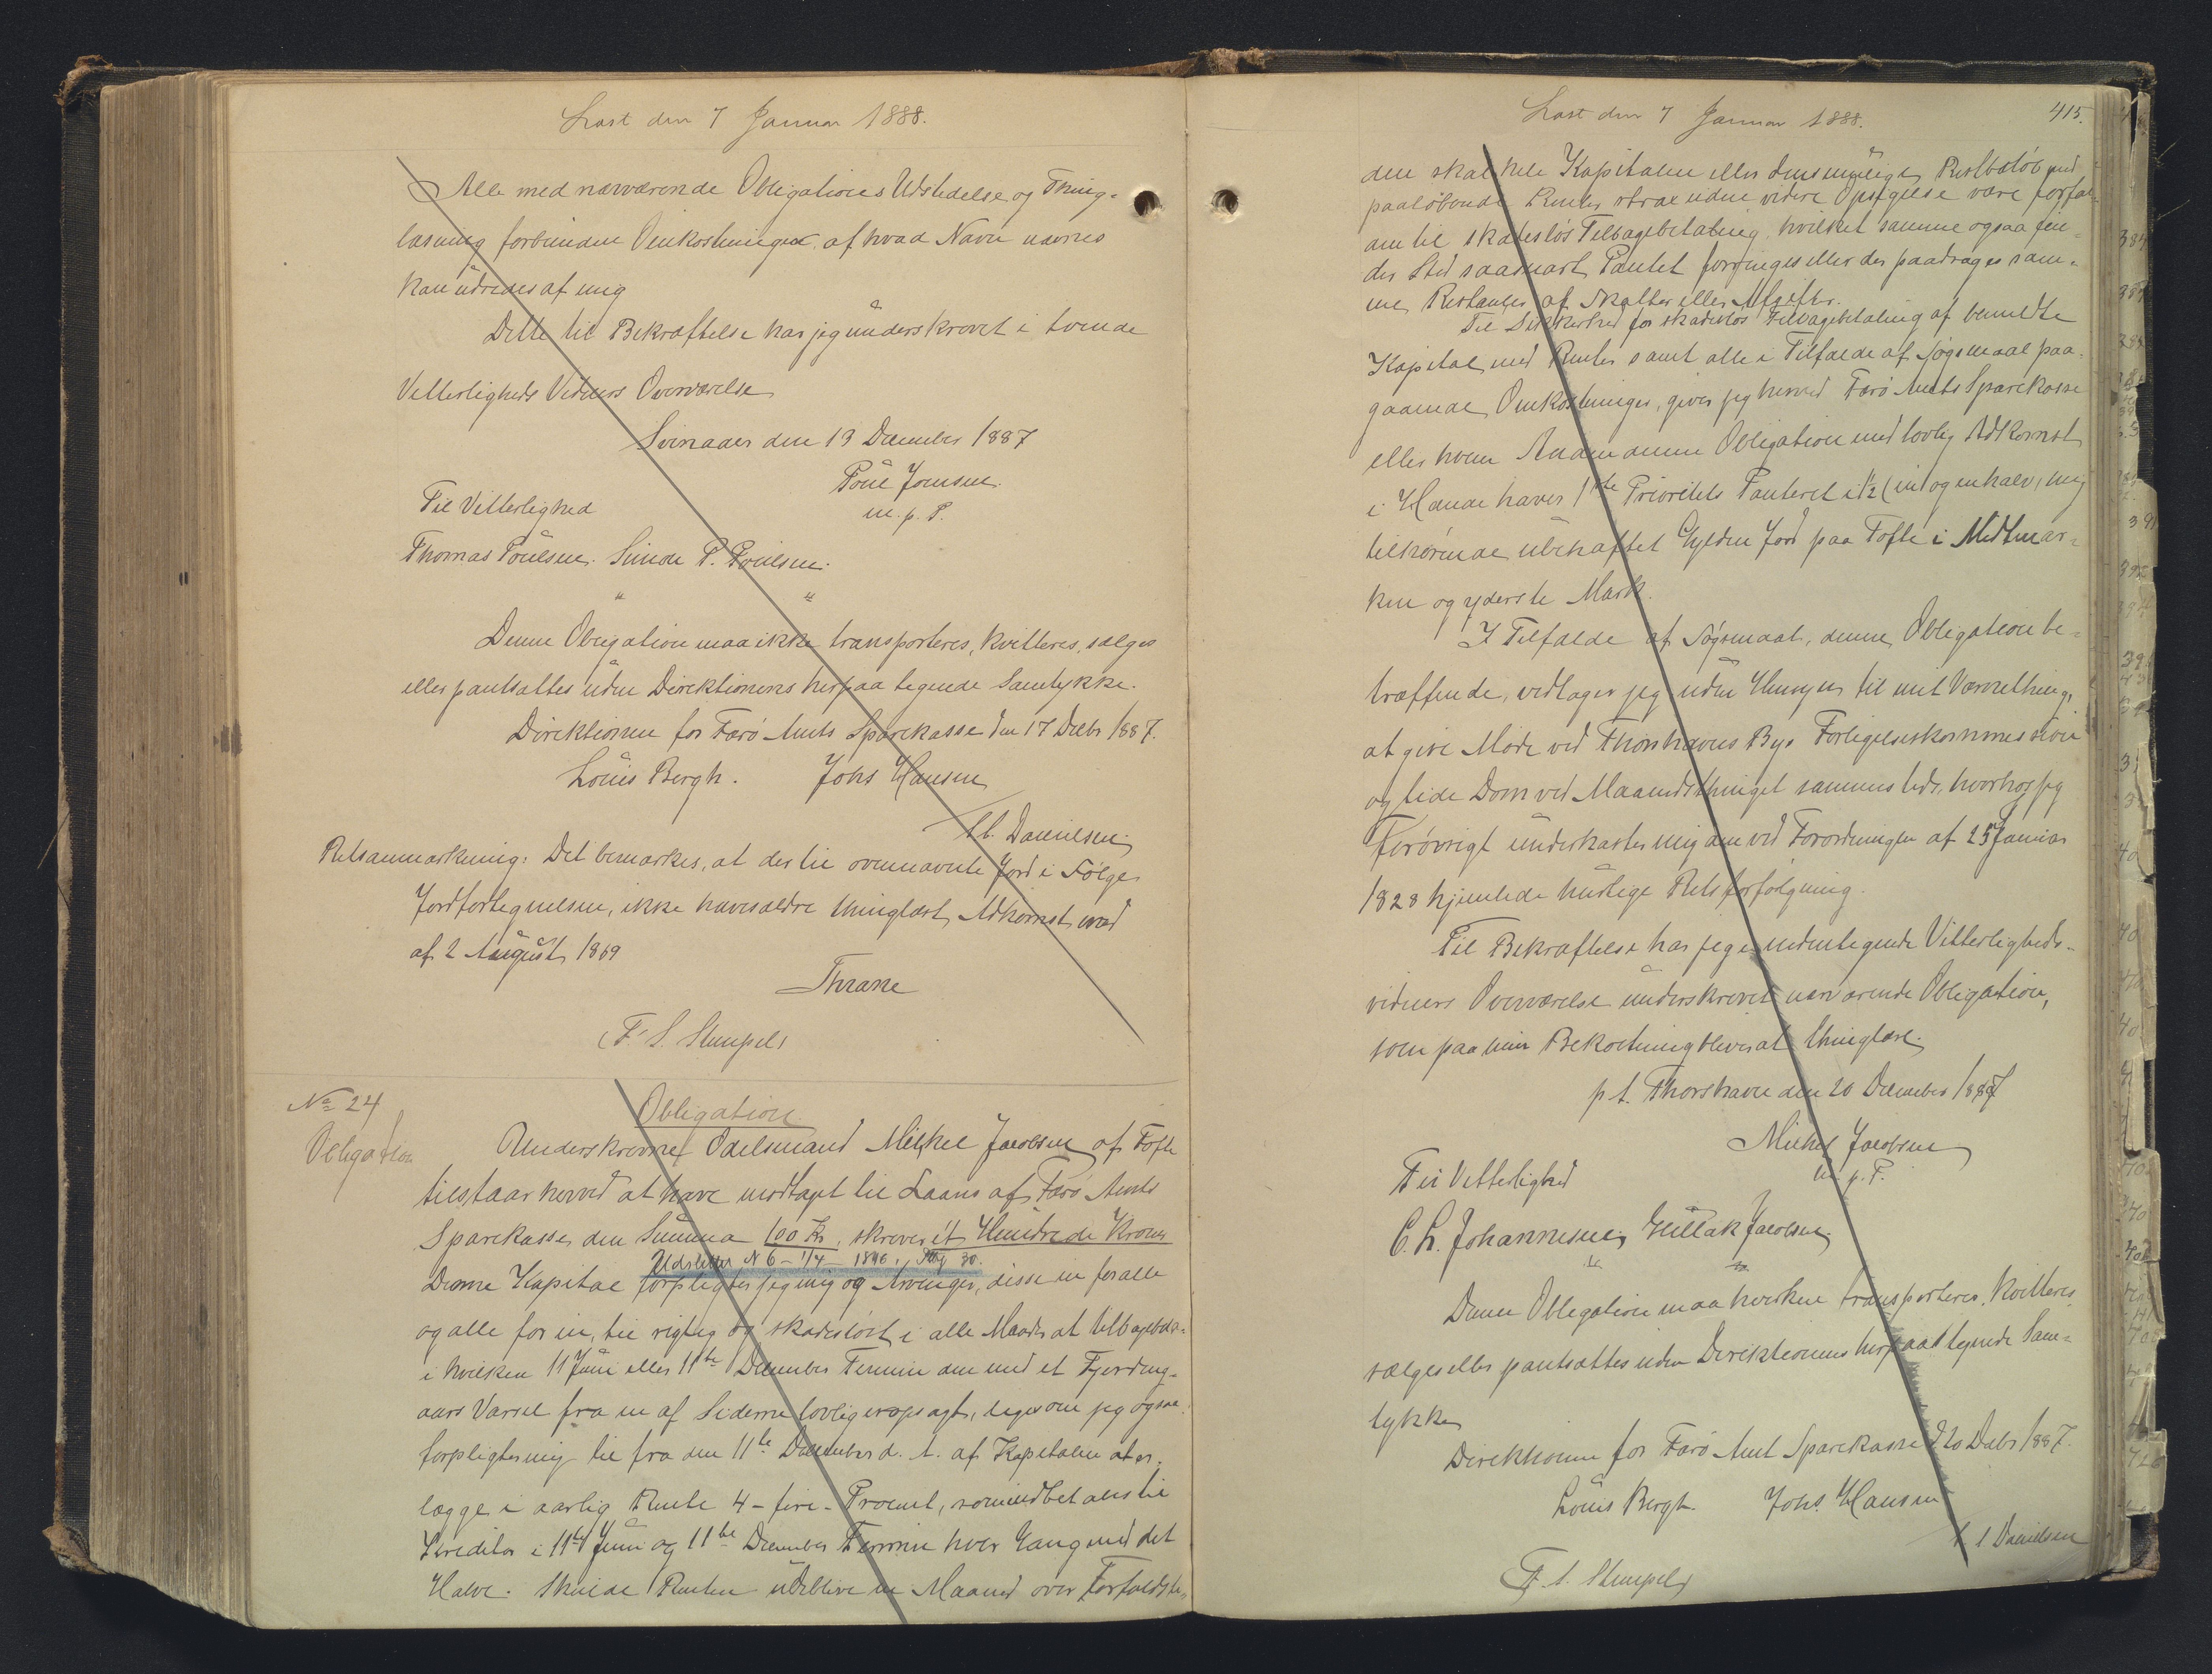 Læst den 7 Januar 1888.
Alle med nærværende Obligations Udstedelse og Thing-
læsning forbunden Omkostninger af hvad Navn nævnes
kan udredes af mig
Dette til Bekræftelse har jeg underskrevet i tvende
Vitterligheds Vidners Overværelse
Svinaaer den 13 December 1887
Poul Joensen.
Til Vitterlighed
m. p. P.
Thomas Poulsen. Simon P. Poulsen.
" "
Denne Obligation maa ikke transporteres, kvitteres, sælges
eller pantsættes uden Direktionens herpaa tegnede Samtykke.
Direktionen for Færø Amts Sparekasse den 17 Decbr 1887.
Louis Bergh. Johs Hansen
Danielsen
Retsanmærkning: Det bemærkes, at der til ovennævnte Jord i Følge
Jordfortegnelsen, ikke haves ældre thinglæst Adkomst end
af 2 August 1869
Thrane
(F. S. Stempel)
No 24
Obligation
Obligation
Underskrevne Odelsmand Mikkel Jacobsen af Tofte
tilstaar herved at have modtaget til Laans af Færø Amts
Sparekasse den Summa 100 Kr, skriver et Hundrede Kroner
Udslettet N 6 - 1/4 - 1896, 30.
Denne Kapital forpligter jeg mig og Arvinger, disse en for alle
og alle for en, til rigtig og skadesløst i alle Maader at tilbagebeta-
i hvilken 11 Juni eller 11te December Termin den med et Fjerding-
aars Varsel fra en af Siderne lovlig er opsagt, ligesom jeg ogsaa
forpligter mig til fra den 11te December d. A. af Kapitalen at er-
lægge i aarlig Rente 4 - fire - Procent, som indbetales til
Kreditor i 11te Juni og 11te December Termin hver Gang med det
Halve. Skulde Renten udeblive en Maaned over Forfaldsti-
Læst den 7 Januar 1888.
415.
den skal hele Kapitalen eller dens mulige Restbeløb med
paaløbende Renter strax uden videre Opsigelse være forfal-
den til skadesløs Tilbagebetaling, hvilket samme ogsaa fin-
der Sted saasnart Pantet forringes eller der paadrages sam-
me Restanter af Skatter eller Afgifter.
Til Sikkerhed for skadesløs Tilbagebetaling af bemeldte
Kapital med Renter samt alle i Tilfælde af Søgsmaal paa-
gaaende Omkostninger, giver jeg herved Færø Amts Sparekasse
eller hvem Anden denne Obligation med lovlig Adkomst
i Hænde haver 1ste Prioritets Panteret i 1½ (en og en halv) mig
tilhørende ubehæftet Gylden Jord paa Tofte i Midtmar-
ken og yderste Mark.
I Tilfælde af Søgsmaal, denne Obligation be-
træffende, vedtager jeg uden Hensyn til mit Værnething,
at give Møde ved Thorshavns Bys Forligelseskommission
og lide Dom ved Maanedsthinget sammesteds, hvorhos jeg
forøvrigt underkaster mig den ved Forordningen af 25 Januar
1828 hjemlede hurtige Retsforfølgning.
Til Bekræftelse har jeg i medentegnede Vitterligheds-
vidners Overværelse underskrevet nærværende Obligation,
som paa min Bekostning bliver at thinglæse.
p. t. Thorshavn den 20 December 1887
Mikkel Jacobsen
m. p. P.
Til Vitterlighed
C. L. Johannesen, Jacobsen
Denne Obligation maa hverken transporteres, kvitteres,
sælges eller pantsættes uden Direktionens herpaa tegnede Sam-
tykke
Direktionen for Færø Amt Sparekasse d 20 Decbr 1887.
Louis Bergh Johs. Hansen
Danielsen
(F. S. Stempel)